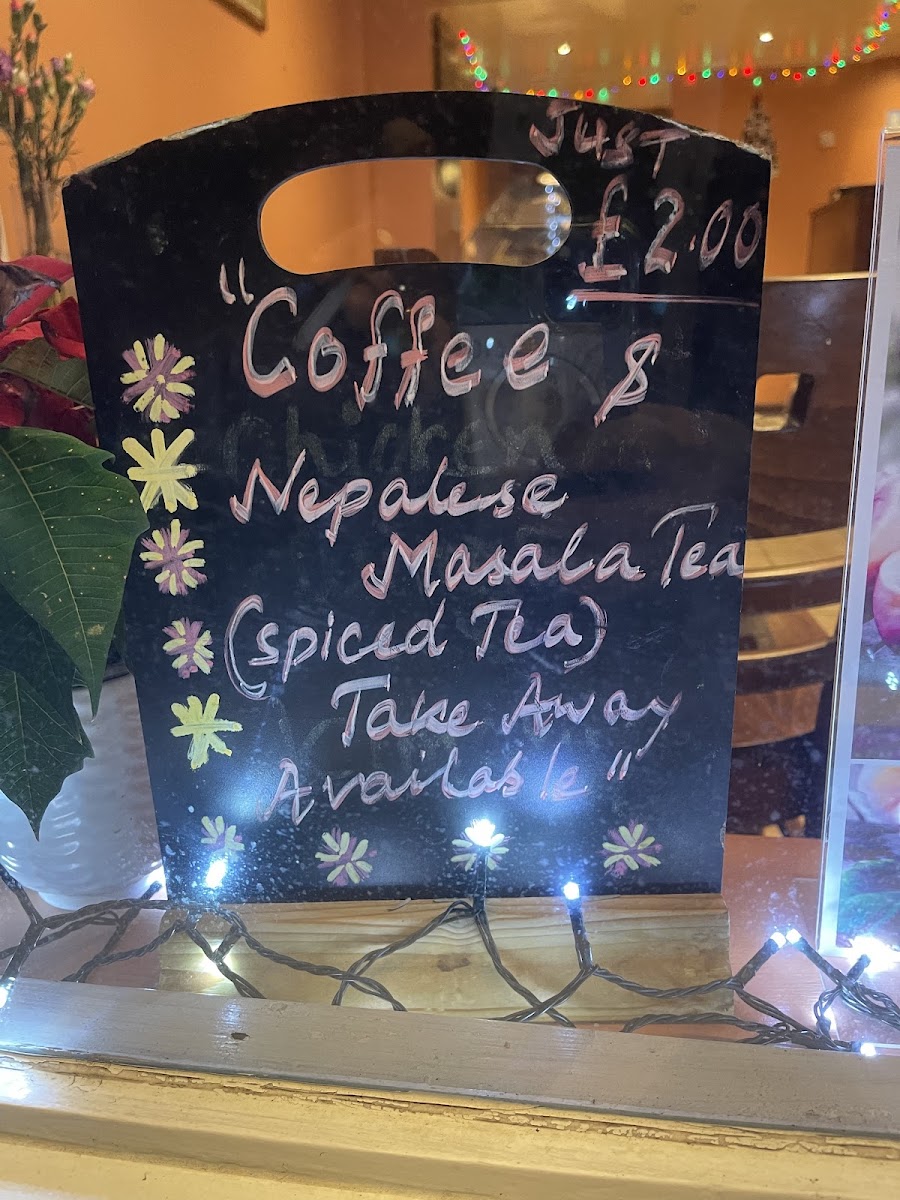 Just
£2.00
"Coffee &
Chicken
Nepalese
Masala Tea
(spiced Tea)
Take Away
Available"